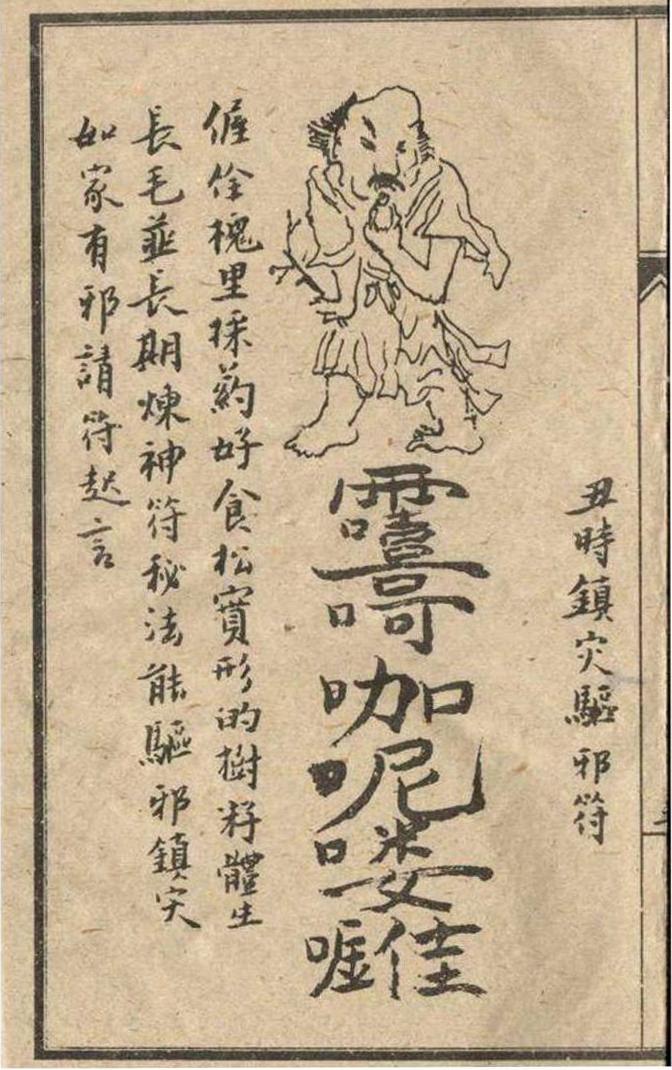 丑時鎮灾驅邪符
咖呢喽佳
偓佺槐里採葯好食松實形的樹籽體生
長毛並長期煉神符秘法能驅邪鎮灾
如家有邪請符起言